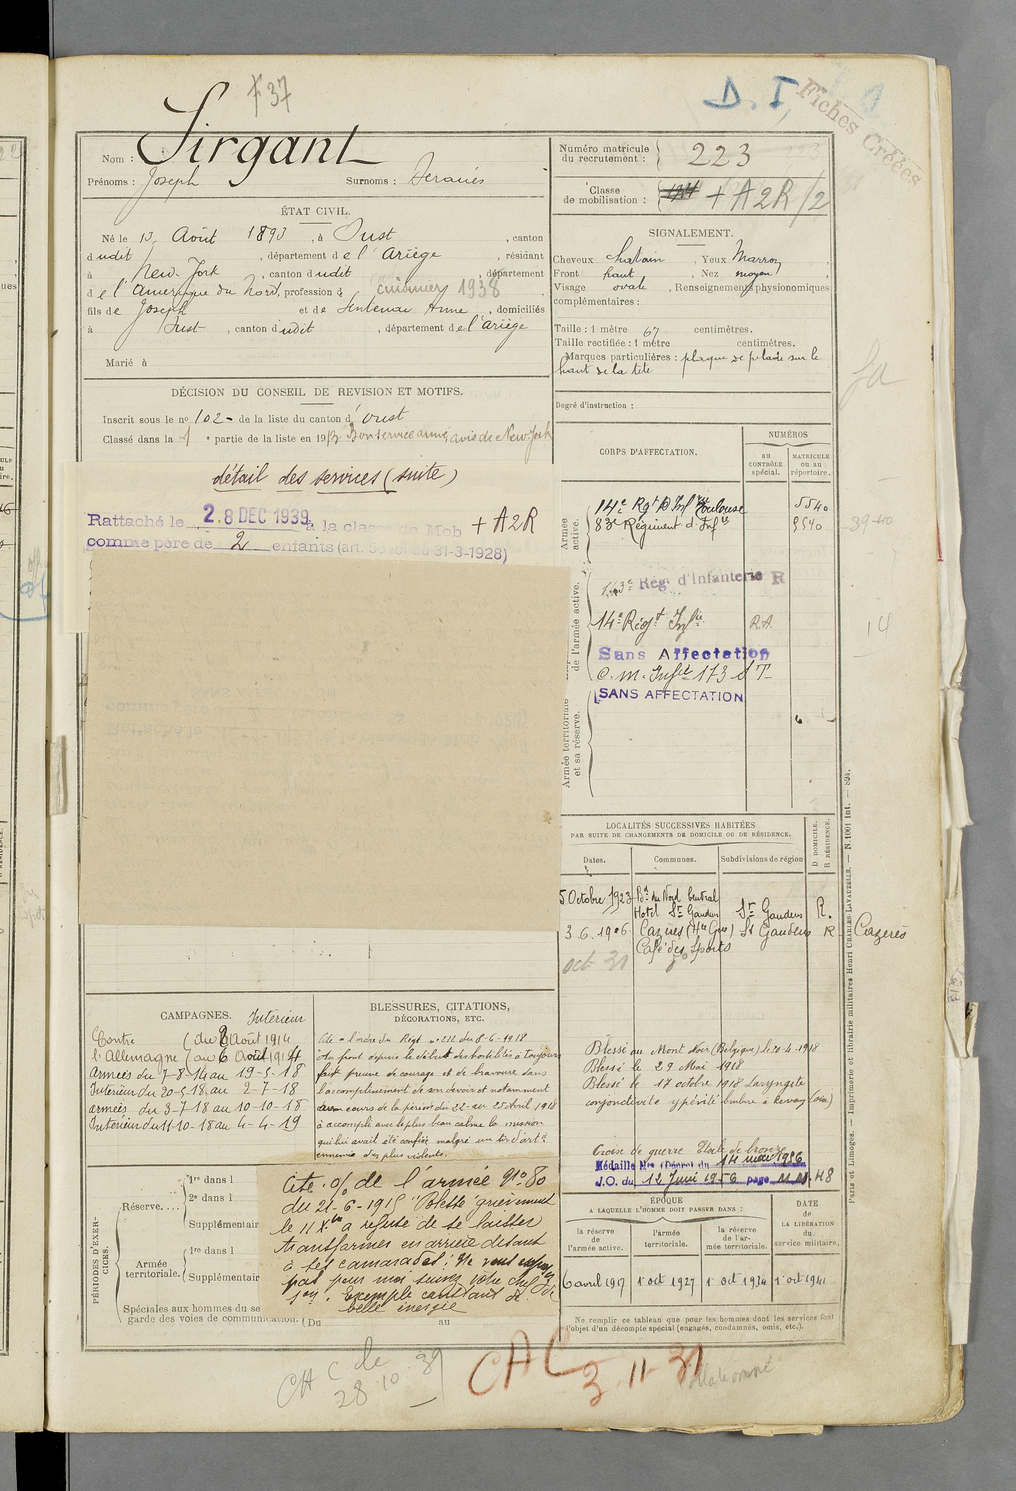 F 37
D. I,
Fiches Créées
Nom : Sirgant
Prénoms : Joseph Surnoms :
Numéro matricule du recrutement : 223
Classe de mobilisation : + A 2R /2
ÉTAT CIVIL.
Né le 13 Août 1893, à Oust, canton
dudit, département de l'Ariège, résidant
à New-York, canton dudit, département
de l'Amérique du Nord, profession de cuisinier 1938
fils de Joseph et de Anne, domiciliés
à Oust, canton dudit, département de l'Ariège
Marié à
SIGNALEMENT.
Cheveux chatain, Yeux Marron
Front haut, Nez moyen
Visage ovale, Renseignements physionomiques
complémentaires :
Taille : 1 mètre 67 centimètres.
Taille rectifiée : 1 mètre centimètres.
Marques particulières : plaque de pelade sur le
haut de la tête
Degré d'instruction :
DÉCISION DU CONSEIL DE REVISION ET MOTIFS.
Inscrit sous le n° 102 de la liste du canton d'Oust
Classé dans la 1e partie de la liste en 1913 Bon service armé, avis de New-York
détail des services (suite)
Rattaché le 28 DEC 1939 à la classe de Mob + A2R
comme père de 2 enfants (art. 58 loi du 31-3-1928)
CORPS D'AFFECTATION.
NUMÉROS
AU CONTRÔLE spécial.
MATRICULE ou au répertoire.
Armée active.
14e Rgt d'Infie Toulouse 5540
83e Régiment d'Infie 9540
39-40
de l'armée active.
143e Régt d'Infanterie R
14e Régt Infie R.A.
14
Sans Affectation
C. m. Infie 173 d T
SANS AFFECTATION
Armée territoriale et sa réserve.
LOCALITÉS SUCCESSIVES HABITÉES
PAR SUITE DE CHANGEMENTS DE DOMICILE OU DE RÉSIDENCE.
Dates. Communes. Subdivisions de région D DOMICILE. R RÉSIDENCE.
5 Octobre 1923 Bd du Nord Central
Hotel St Gaudens St Gaudens R.
3.6.1926 Cazères (Hte Gne) St Gaudens R Cazeres
Café des Sports
oct 31
CAMPAGNES. Intérieur
Contre du 2 Août 1914
l'Allemagne au 6 Août 1914
Armées du 7-8-14 au 19-5-18
Intérieur du 20-5-18 au 2-7-18
armées du 3-7-18 au 10-10-18
Intérieur du 11-10-18 au 4-4-19
BLESSURES, CITATIONS,
DÉCORATIONS, ETC.
Cité à l'ordre du Régt n° 212 du 8-6-1918
Au front depuis le début des hostilités a toujours
fait preuve de courage et de bravoure dans
l'accomplissement de son devoir et notamment
au cours de la période du 22 au 25 Avril 1918
a accompli avec le plus beau calme la mission
qui lui avait été confiée malgré un tir d'artie
ennemie des plus violents.
Blessé au Mont Noir (Belgique) le 30-4-1918
Blessé le 29 Mai 1918
Blessé le 17 octobre 1918 Laryngite
conjonctivite ypérité
Croix de guerre Etoile de bronze
Médaille Mre (Décret du 14 mai 1956
J.O. du 12 Juin 1956 page
PÉRIODES D'EXERCICES.
Réserve....
1re dans l
2e dans l
Supplémentair
Armée territoriale.
1re dans l
Supplémentair
Spéciales aux hommes du se
garde des voies de communication. (Du au
Cité o/ de l'armée n° 80
du 21-6-1915 "Blessé grièvement
le 11 Xbre a refusé de se laisser
transformer en arrière disant
à ses camarades: Ne vous
pas pour moi suivez votre chef
Exemple constant de
belle énergie
ÉPOQUE
A LAQUELLE L'HOMME DOIT PASSER DANS :
la réserve de l'armée active. l'armée territoriale. la réserve de l'armée territoriale.
DATE DE LA LIBÉRATION du service militaire.
6 avril 1917 1er oct 1927 1er Oct 1934 1er oct 1941
Ne remplir ce tableau que pour les hommes dont les services font
l'objet d'un décompte spécial (engagés, condamnés, omis, etc.).
Paris et Limoges. — Imprimerie et librairie militaires Henri CHARLES-LAVAUZELLE. — N. 1001 int. — 894.
CH C le 28 10 39
CAC 3.11.31